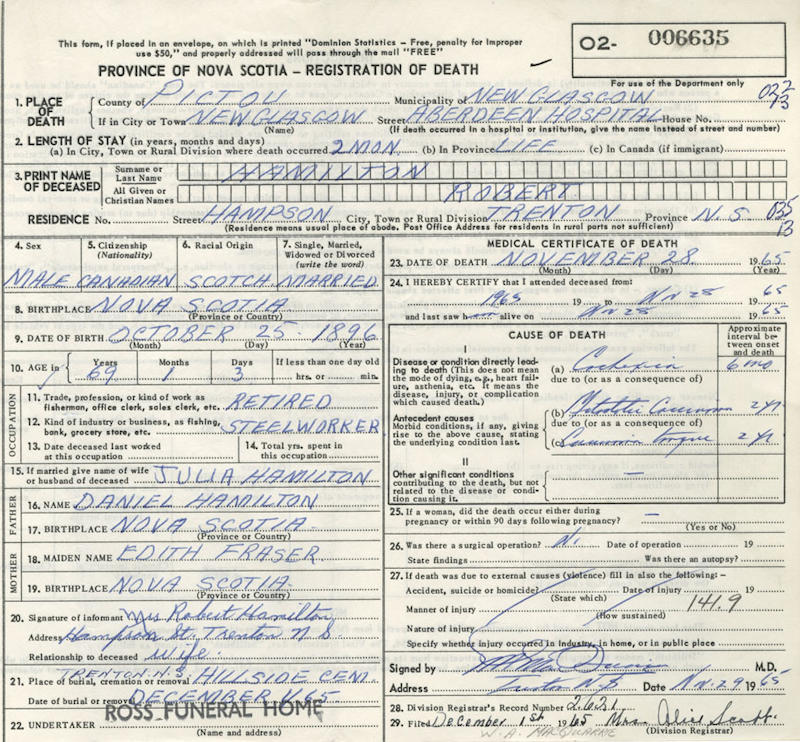 This form, if placed in an envelope, on which is printed "Dominion Statistics – Free, penalty for improper
use $50," and properly addressed will pass through the mail "FREE"
O2- 006635
PROVINCE OF NOVA SCOTIA – REGISTRATION OF DEATH
For use of the Department only
1. PLACE OF DEATH County of PICTOU Municipality of NEW GLASGOW 022
If in City or Town NEW GLASGOW Street ABERDEEN HOSPITAL House No. 13
(Name) (If death occurred in a hospital or institution, give the name instead of street and number)
2. LENGTH OF STAY (in years, months and days)
(a) In City, Town or Rural Division where death occurred 2 MON. (b) In Province LIFE (c) In Canada (if immigrant)
3. PRINT NAME OF DECEASED Surname or Last Name HAMILTON
All Given or Christian Names ROBERT
RESIDENCE No. Street HAMPSON City, Town or Rural Division TRENTON Province N.S 13
(Residence means usual place of abode. Post Office Address for residents in rural parts not sufficient)
4. Sex 5. Citizenship (Nationality) 6. Racial Origin 7. Single, Married, Widowed or Divorced (write the word)
MALE CANADIAN SCOTCH MARRIED
8. BIRTHPLACE NOVA SCOTIA
(Province or Country)
9. DATE OF BIRTH OCTOBER 25 - 1896
(Month) (Day) (Year)
10. AGE in Years Months Days If less than one day old
69 1 3 hrs. or min.
OCCUPATION
11. Trade, profession, or kind of work as fisherman, office clerk, sales clerk, etc. RETIRED
12. Kind of industry or business, as fishing, bank, grocery store, etc. STEELWORKER
13. Date deceased last worked at this occupation
14. Total yrs. spent in this occupation
15. If married give name of wife or husband of deceased JULIA HAMILTON
FATHER
16. NAME DANIEL HAMILTON
17. BIRTHPLACE NOVA SCOTIA
(Province or Country)
MOTHER
18. MAIDEN NAME EDITH FRASER
19. BIRTHPLACE NOVA SCOTIA
(Province or Country)
20. Signature of informant Mrs Robert Hamilton
Address Hampson St. Trenton N S.
Relationship to deceased wife.
TRENTON. N.S
21. Place of burial, cremation or removal HILLSIDE CEM.
Date of burial or removal DECEMBER 1/65
ROSS FUNERAL HOME
22. UNDERTAKER
(Name and address)
MEDICAL CERTIFICATE OF DEATH
23. DATE OF DEATH NOVEMBER 28 1965
(Month) (Day) (Year)
24. I HEREBY CERTIFY that I attended deceased from:
1965 19 to Nov 28 1965
and last saw h alive on Nov 28 1965
CAUSE OF DEATH
Approximate interval between onset and death
I
Disease or condition directly leading to death (This does not mean the mode of dying, e.g., heart failure, asthenia, etc. It means the disease, injury, or complication which caused death.)
(a) Cachexia 6 mo
due to (or as a consequence of)
Antecedent causes
Morbid conditions, if any, giving rise to the above cause, stating the underlying condition last.
(b) 2 yr
due to (or as a consequence of)
(c) Carcinoma tongue 2 yr
II
Other significant conditions contributing to the death, but not related to the disease or condition causing it. –
25. If a woman, did the death occur either during pregnancy or within 90 days following pregnancy? –
(Yes or No)
26. Was there a surgical operation? No. Date of operation 19
State findings Was there an autopsy?
27. If death was due to external causes (violence) fill in also the following: –
Accident, suicide or homicide? Date of injury 19
(State which)
Manner of injury 141.9
(How sustained)
Nature of injury
Specify whether injury occurred in industry, in home, or in public place
Signed by M.D.
Address Trenton N.S Date Nov. 29 1965
28. Division Registrar's Record Number 2631
29. Filed December 1st 1965 Mrs. Alice Scott
W. A. MACQUARRIE (Division Registrar)